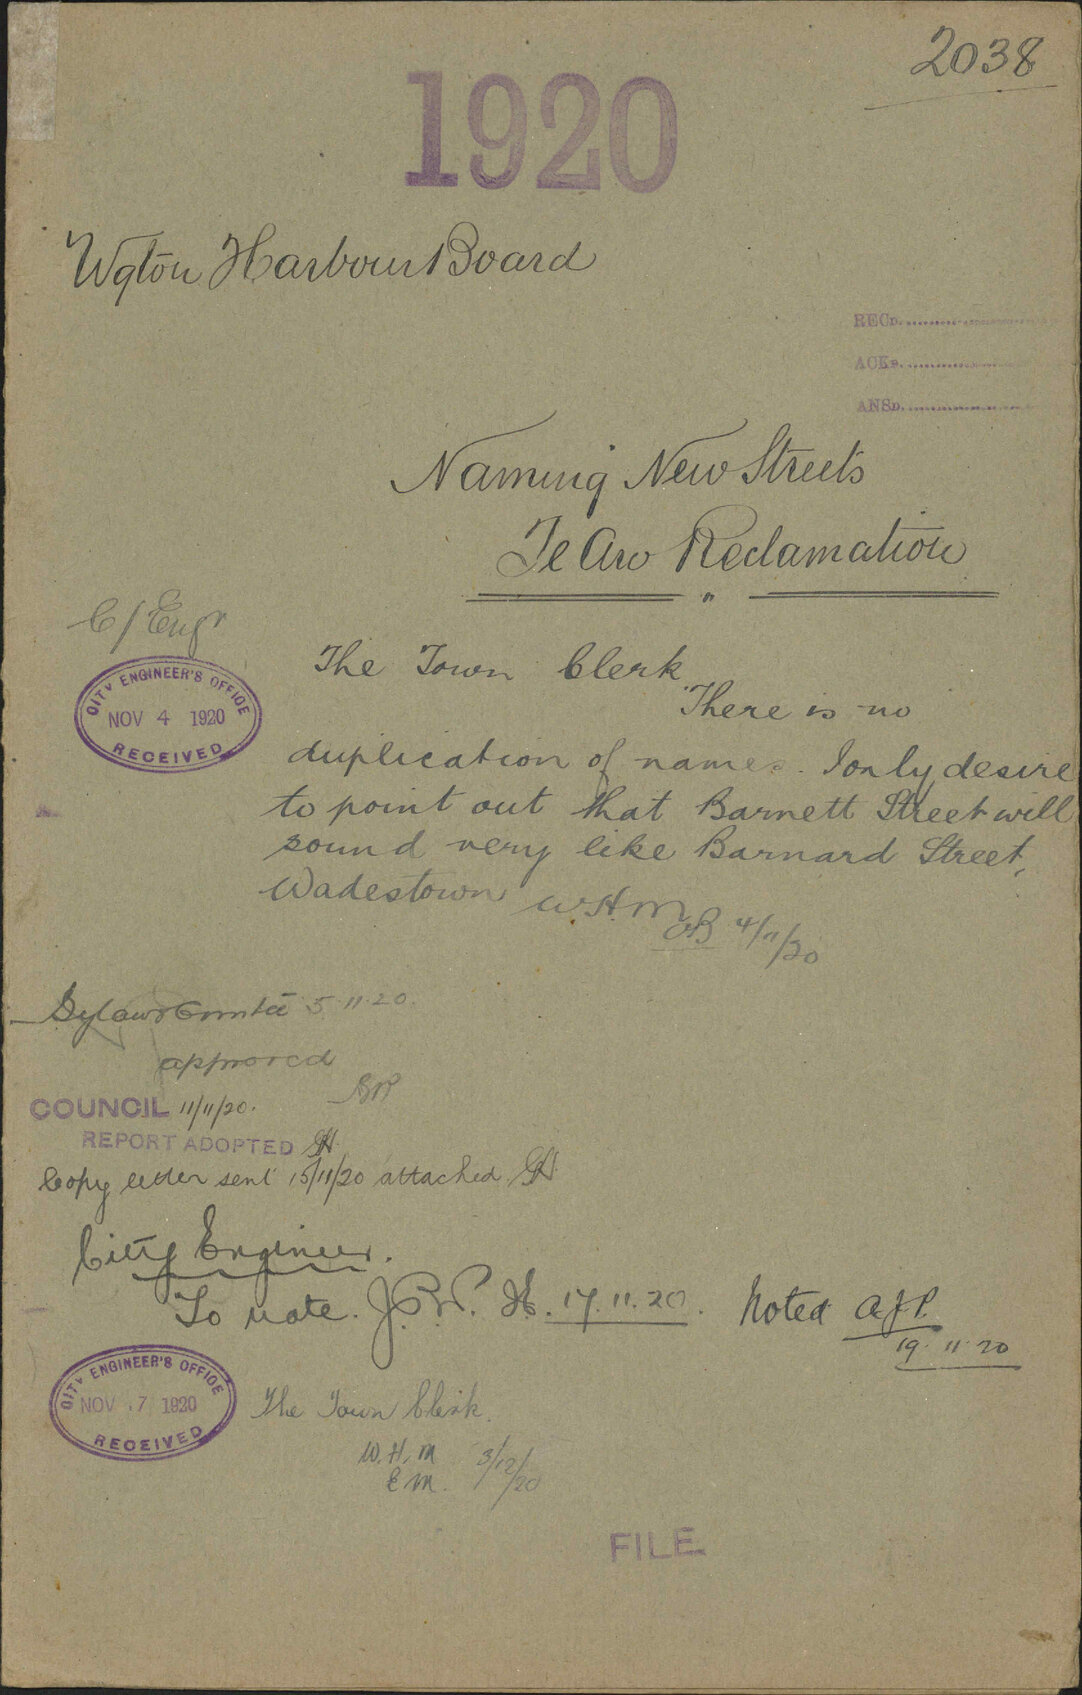 2038
1920
Wgton Harbour Board
RECD.
ACKD.
ANSD.
Naming New Streets
Te Aro Reclamation
C/Engr
CITY ENGINEER'S OFFICE
NOV 4 1920
RECEIVED
The Town Clerk
There is no
duplication of names. I only desire
to point out that Barnett Street will
sound very like Barnard Street,
Wadestown W.H.M
4/11/20
Bylaws Comtee 5.11.20.
approved
COUNCIL 11/11/20.
REPORT ADOPTED
Copy letter sent 15/11/20 attached
City Engineer.
To note. 17.11.20. Noted AJP
19.11.20
CITY ENGINEER'S OFFICE
NOV 17 1920
RECEIVED
The Town Clerk.
W.H.M 3/12/20
E M.
FILE